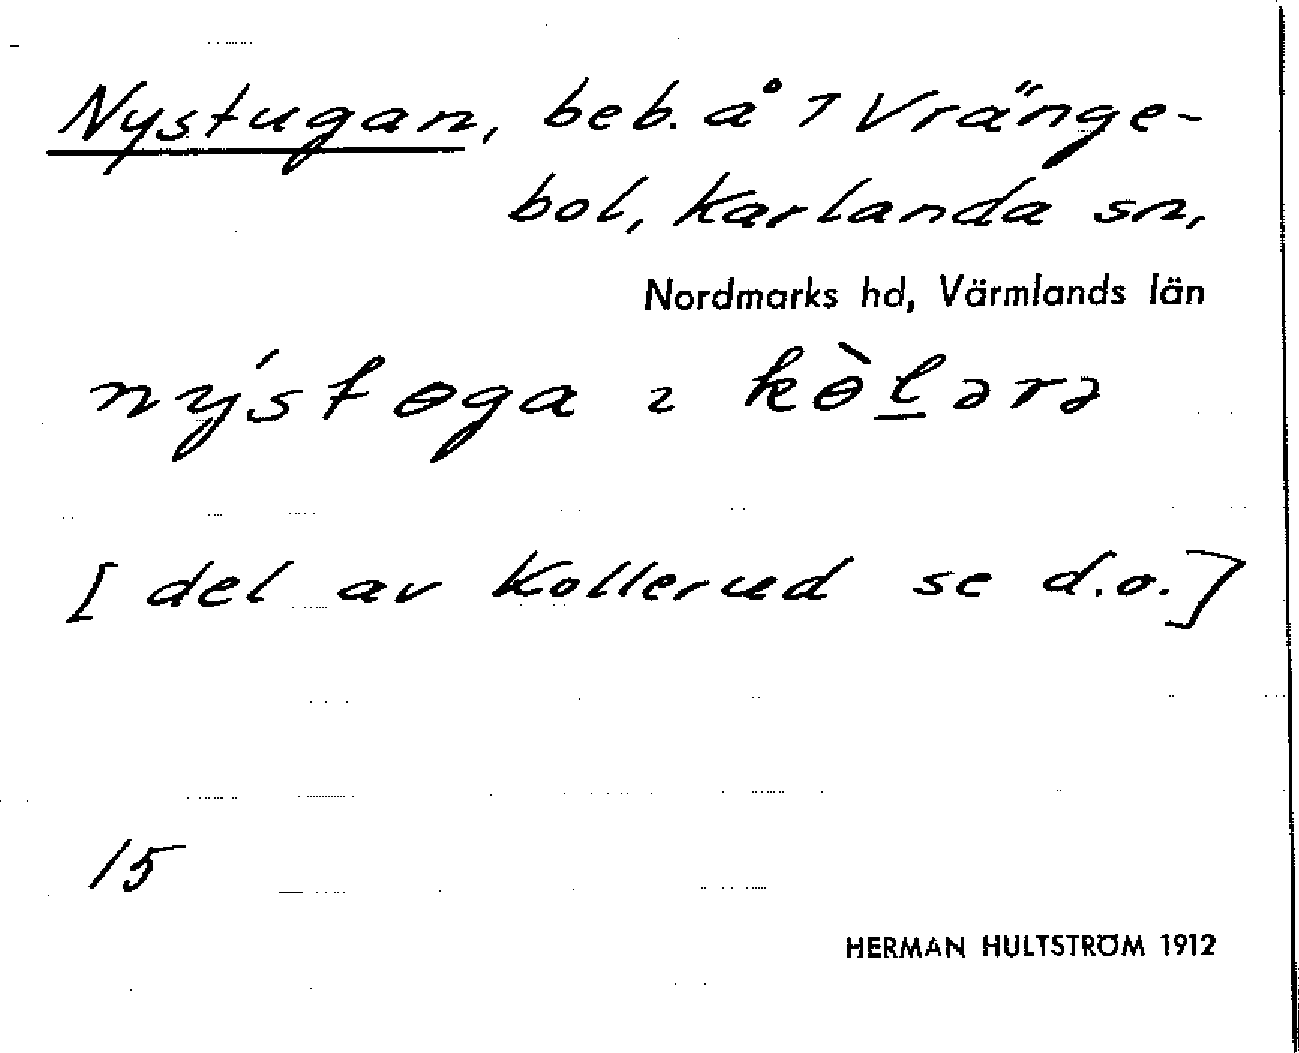 Nystugan, beb. å 7 Vränge-
bol, Karlanda sn,
Nordmarks hd, Värmlands län
nýstɵga ɿ kɵ̀l̲ərə
[del av Kollerud se d.o.]
15
HERMAN HULTSTRÖM 1912